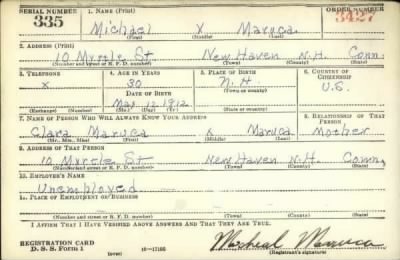 SERIAL NUMBER 1. NAME (Print) ORDER NUMBER
335 Michael X Maruca 3427
(First) (Middle) (Last)
2. ADDRESS (Print)
10 Myrtle St. New Haven N.H. Conn.
(Number and street or R. F. D. number) (Town) (County) (State)
3. TELEPHONE 4. AGE IN YEARS 5. PLACE OF BIRTH 6. COUNTRY OF CITIZENSHIP
X 30 N.H. U.S.
DATE OF BIRTH (Town or county)
May 12 1912
(Exchange) (Number) (Mo.) (Day) (Yr.) (State or country)
7. NAME OF PERSON WHO WILL ALWAYS KNOW YOUR ADDRESS 8. RELATIONSHIP OF THAT PERSON
Clara Maruca X Maruca Mother
(Mr., Mrs., Miss) (First) (Middle) (Last)
9. ADDRESS OF THAT PERSON
10 Myrtle St New Haven N.H. Conn.
(Number and street or R. F. D. number) (Town) (County) (State)
10. EMPLOYER'S NAME
Unemployed
11. PLACE OF EMPLOYMENT OR BUSINESS
(Number and street or R. F. D. number) (Town) (County) (State)
I AFFIRM THAT I HAVE VERIFIED ABOVE ANSWERS AND THAT THEY ARE TRUE.
REGISTRATION CARD
D. S. S. Form 1 (over) Micheal Maruca
(Registrant's signature)